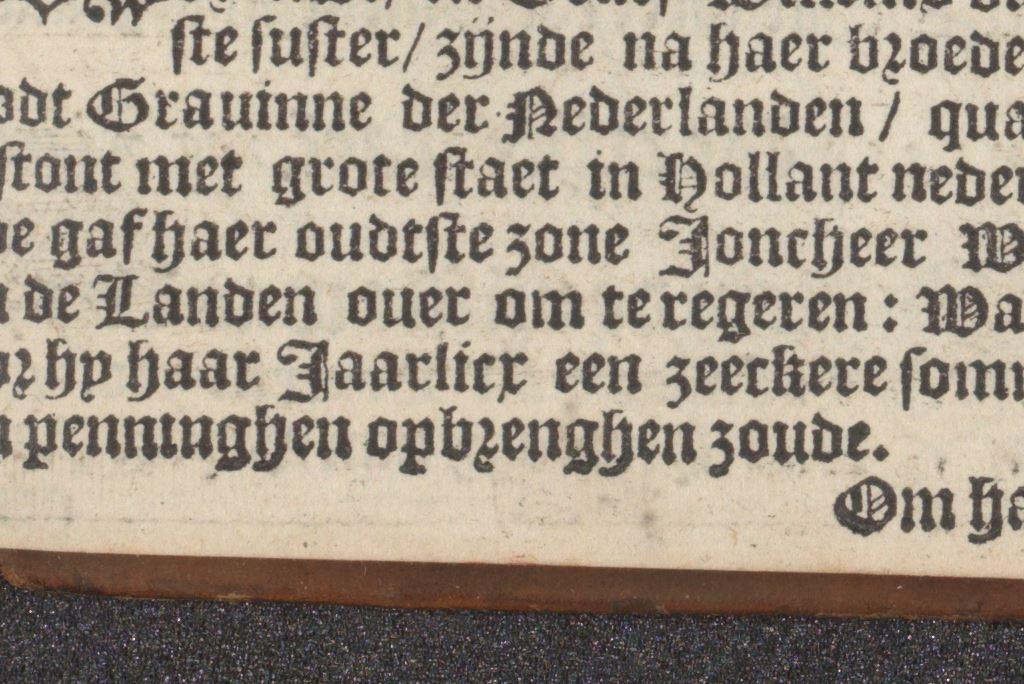 ste suster/ zijnde na haer broede
odt Grauinne der Nederlanden / qua
stont met grote staet in Hollant neder
gaf haer oudtste zone Joncheer W
de Landen ouer om te regeren: Wa
hy haar Jaarlicx een zeeckere som
penninghen opbrenghen zoude.
Om ha